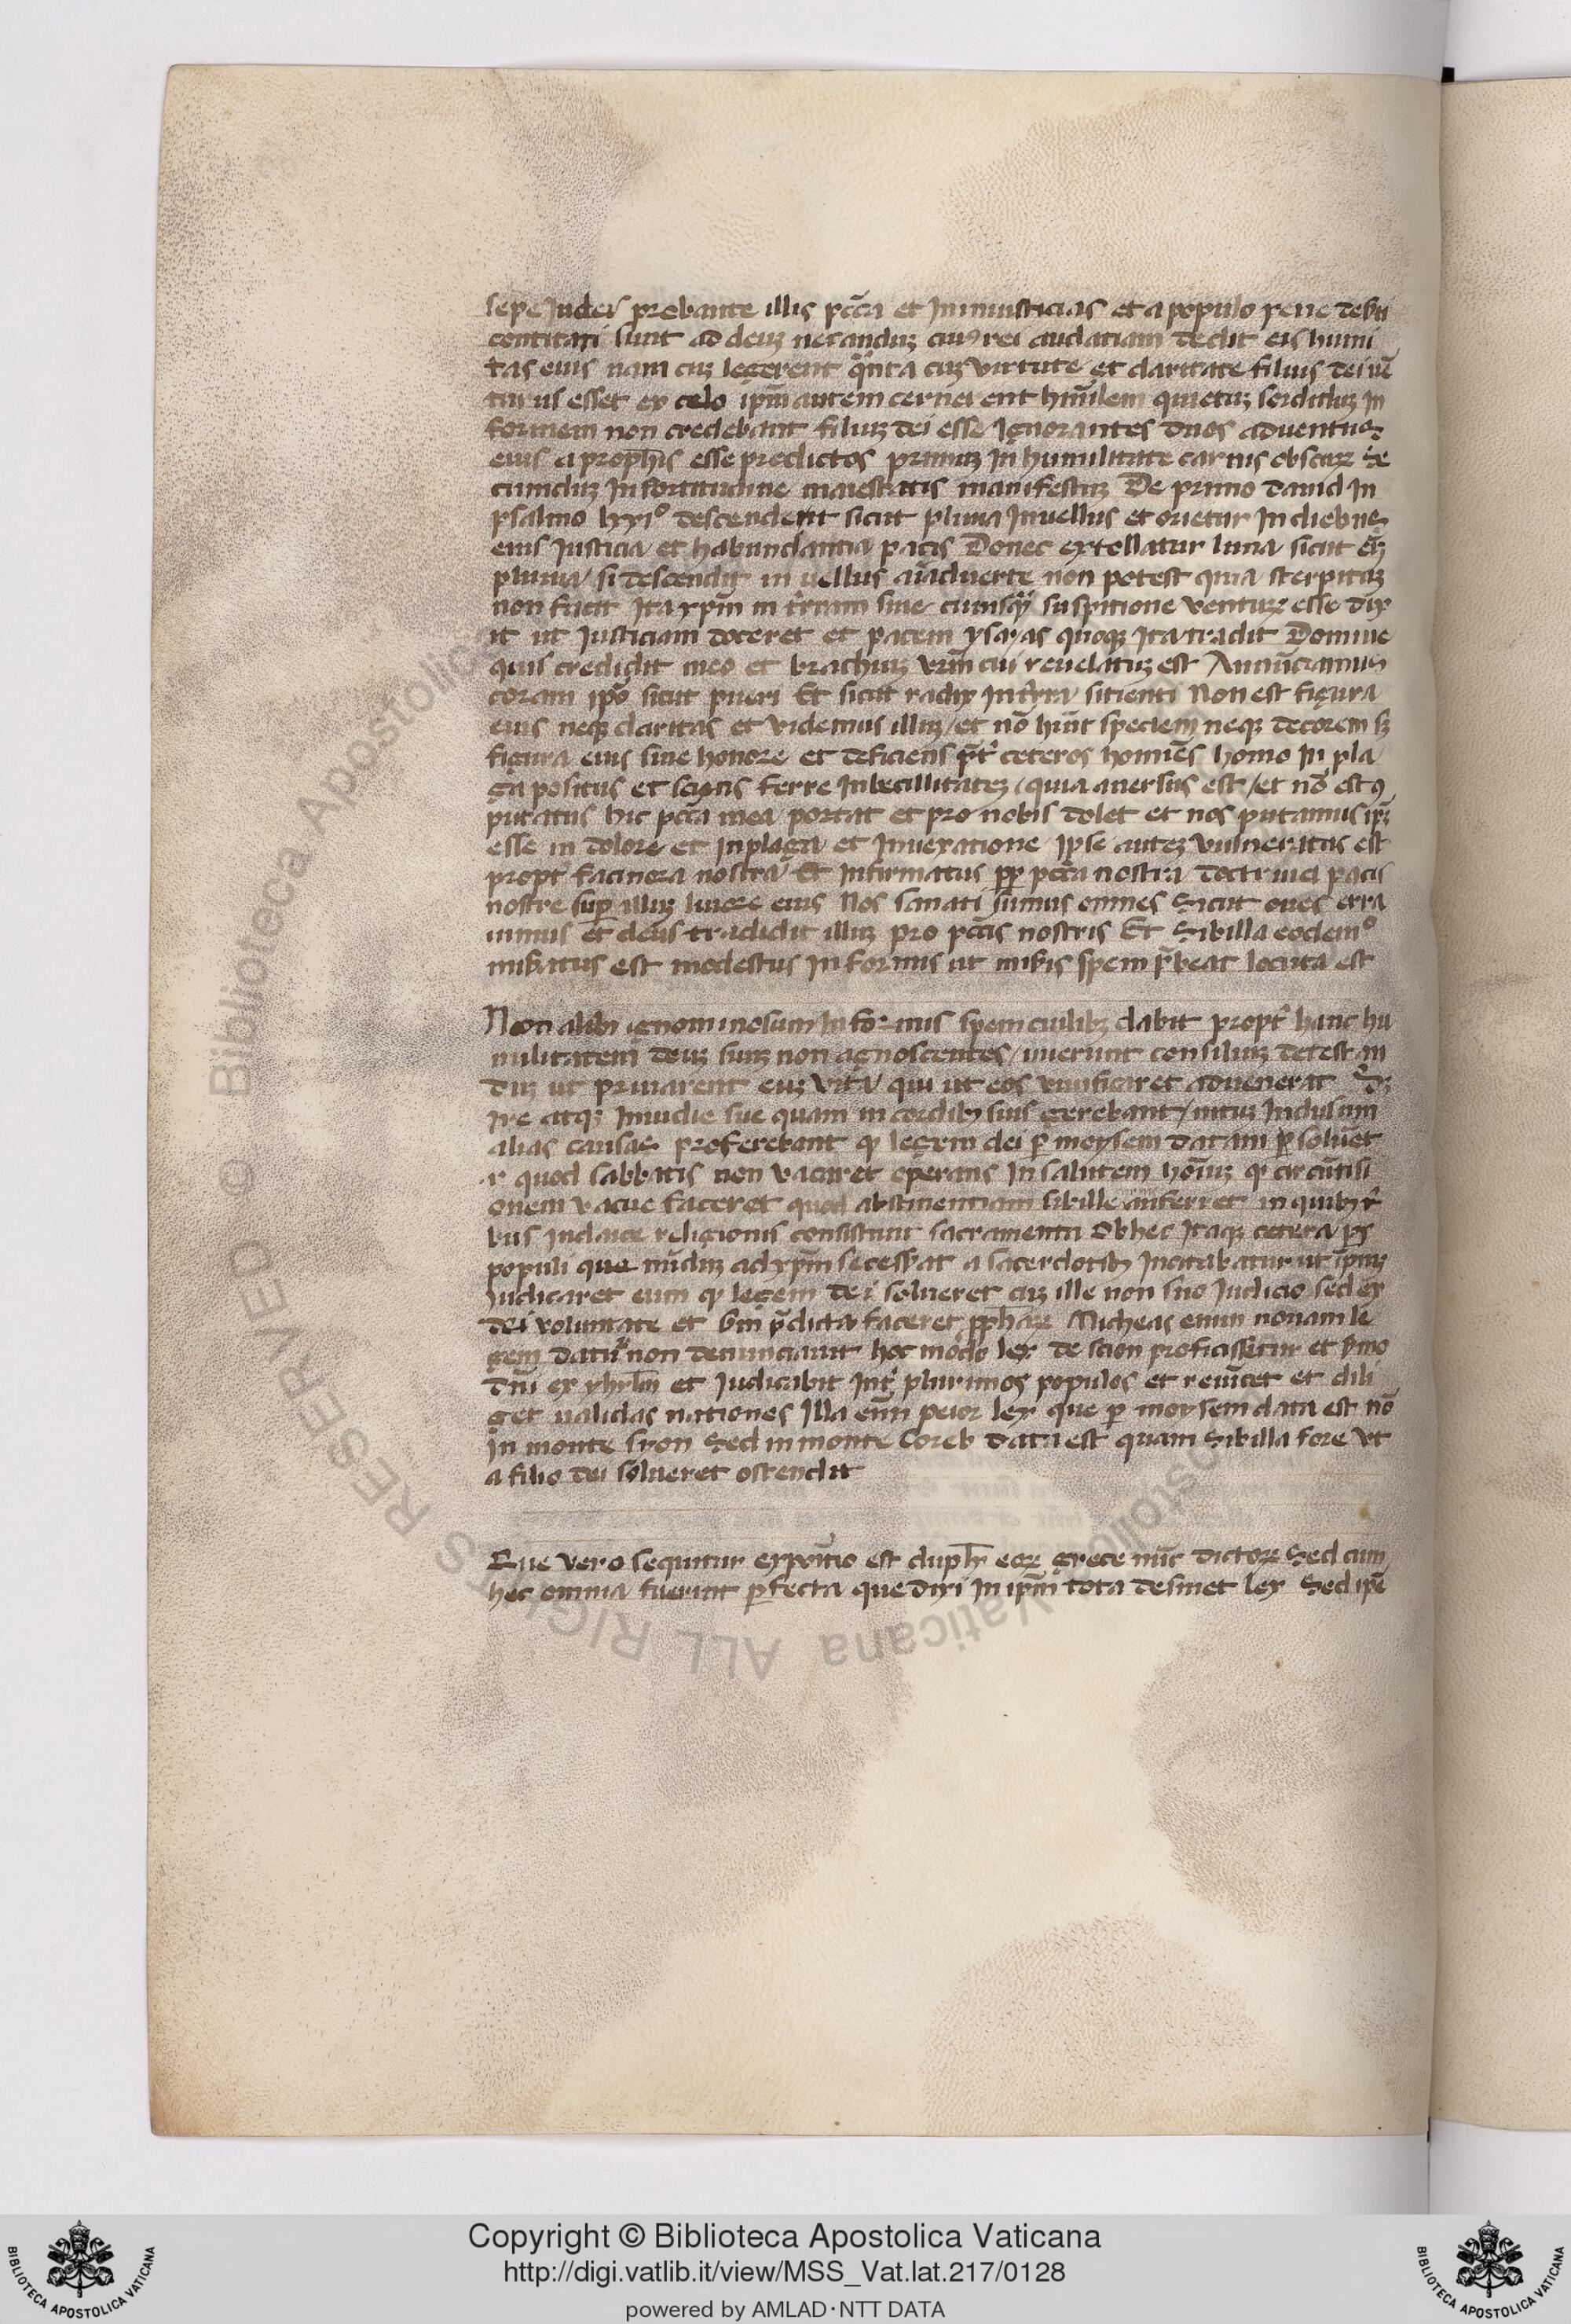 sepe Iudei probante illis pcc̄a et Ininiusticias et a populo pene
contitati sunt ad deuz necanduz cuiꝰ rei audatiam dedit eis humi
tas eius nam cuz legerent q̊nta cuz virtute et claritate filius dei uē
turus esset ex celo ip̄m autem cernerent hūīlem quietuz sordiduz In
formem non credebant filiuz dei esse Ignorantes duos adventus
eius a proph̄is esse predictos primuz In humilitate carnis obscuꝝ se
cunduz In fortitudine maiestatis manifestuz De primo dauid In
psalmo lxxiº descendent sicut pluuia In uellus et orietur In diebus
eius Iusticia et habundantia pacis Donec extollatur luna sicut em̄
pluuia si descendit in uellus aīaduerte non potest quia sterpituz
non facit Ita xp̄m in t̄rram sine cuiusq̄ suspitione ventuꝝ esse dix
it ut Iusticiam doceret et pacem ysayas quoqꝫ Ita tradit Domine
quis credidit meo et brachiuz vr̄m cui reuelatuz est Annūciamus
coram ip̄o sicut pueri Et sicut radix In t̄rra sitienti Non est figura
eius neqꝫ claritas et videmus illuz et nō hūit speciem neqꝫ decorem sꝫ
figura eius sine honore et deficiens p̄t̄ ceteros homēs homo In pla
ga positus et sciens ferre Inbecillitatez quia auersus est et nō est
putatus hic pcc̄a mea portat et pro nobis dolet et nos putamus ip̄ꝫ
esse in dolore et In plaga et In uexatione Ipse autez vulneratus est
propt̄ facinora nostra Et Infirmatus pp̄ pcc̄a nostra doctrina pacis
nostre sup̄ illuz liuore eius Nos sanati sumus omnes Sicut oues erra
uimus et deus tradidit illuz pro pcc̄is nostris Et Sibilla eodemº
mibatus est modestus In formis ut mibis spem p̄beat locuta est
Non alibi ignominosum In formis spem cuilibꝫ dabit propt̄ hanc hu
militatem deuz suuz non agnoscentes iniuerunt consiliuz detestan
duz ut priuarent euz vita qui ut eos uiuificaret aduenerat
Ire atqꝫ Inuidie sue quam in cordibꝫ suis gerebant
alias causas proferebant qꝫ legem dei ꝑ moysem datam ꝑsolu̅et
r quod sabbatis non vacaret operans In salutem hoīuz qꝫ circūcisi
onem vacue faceret quod abstinentiam sibille auferret in quibꝫ r̄
bus Iudaice religionis consistunt sacramenta Ob hec Itaqꝫ cetera ps
populi que nūduz ad xp̄m secesserat a sacerdotibꝫ Incitabatur ut ip̄nuz
Iudicaret eum qꝫ legem dei solueret cuz ille non suo Iudicio sed ex
dei voluntate et s̄m p̄dicta faceret pph̄aꝝ Micheas enim nouam le
gem datuꝝ non denunciauit hoc modo lex de scion proficissetur et s̄mo
dn̄i ex yhrlm̄ et Iudicabit Int̄ plurimos populos et reuīcet et dili
get ualidas nationes Illa em̄ peior lex que ꝑ moysem data est nō
In monte syon Sed in monte Coreb data est quam Sibilla fore vt
a filio dei solueret ostendit
Que vero sequitur expositio est dupl̄x eoꝝ grece nūc dictoꝝ Sed cum
hec omnia fuerint ꝑfecta que dixi In ip̄m tota desinet lex Sed ip̄e
Copyright © Biblioteca Apostolica Vaticana
http://digi.vatlib.it/view/MSS_Vat.lat.217/0128
powered by AMLAD·NTT DATA